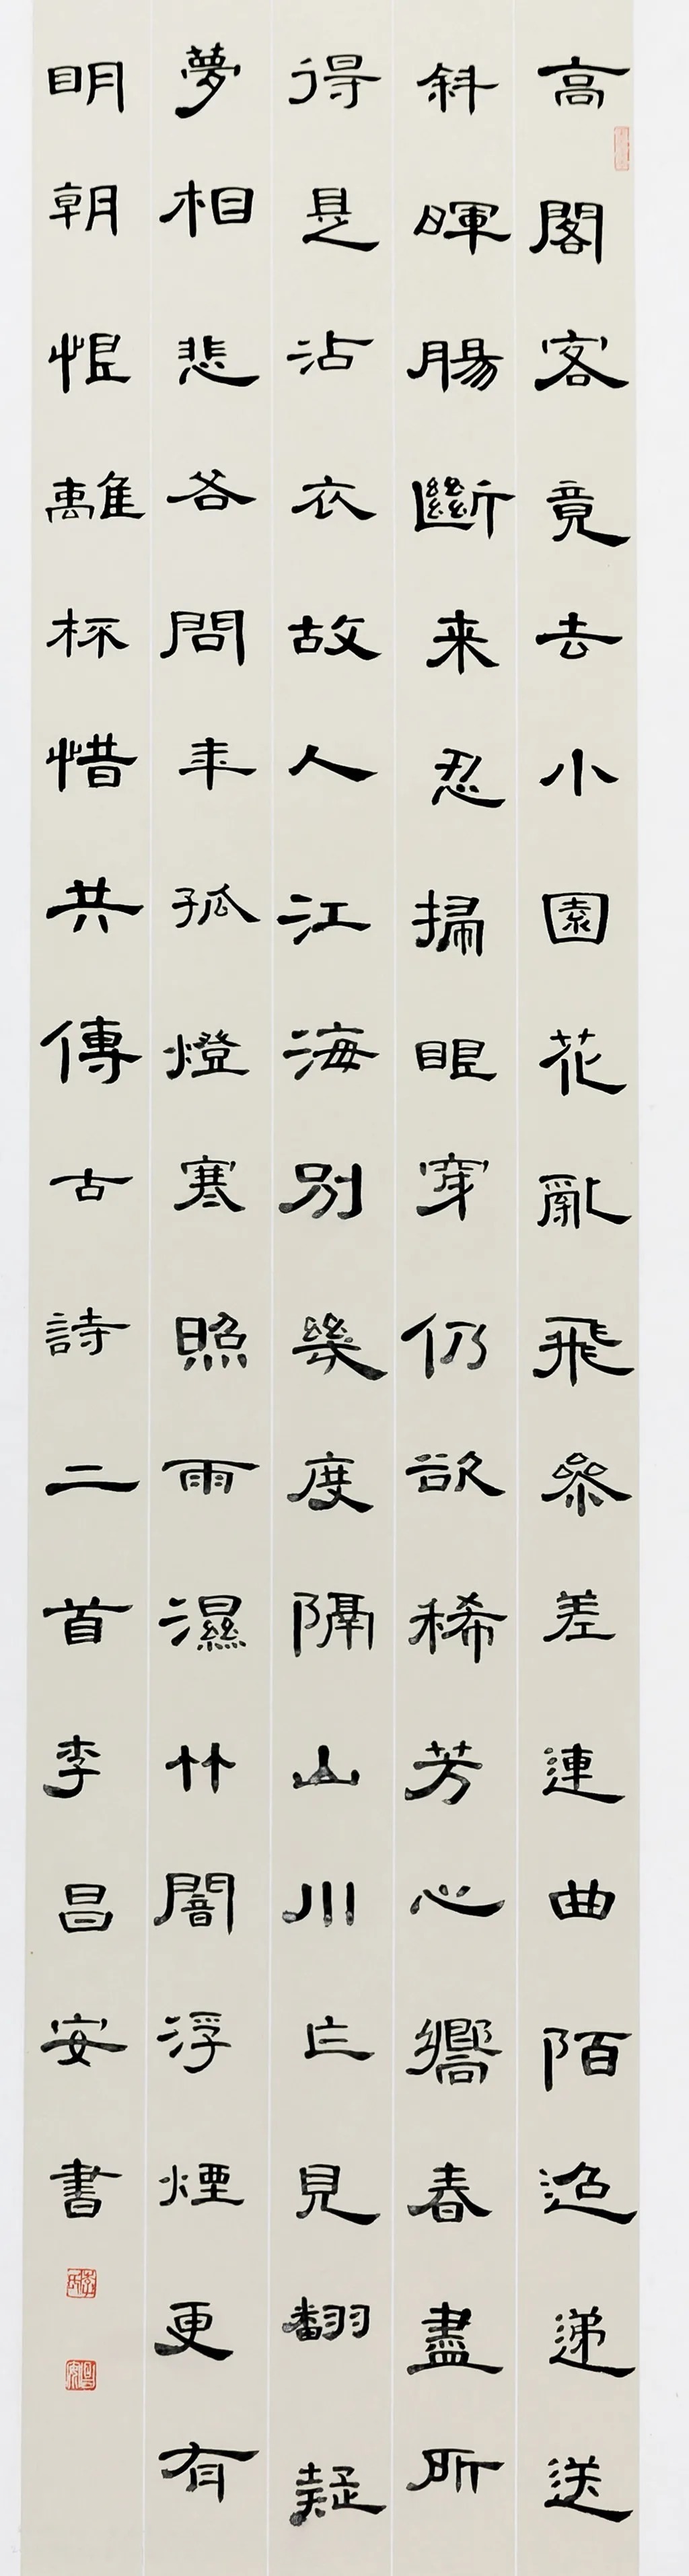 高閣客竟去小園花亂飛參差連曲陌迢遞送
斜暉腸斷来忍掃眼穿仍欲稀芳心嚮春盡所
得是沾衣故人江海別幾度隔山川乍見翻疑
夢相悲各問年孤燈寒照雨濕竹闇浮煙更有
明朝恨離杯惜共傳古詩二首李昌安書